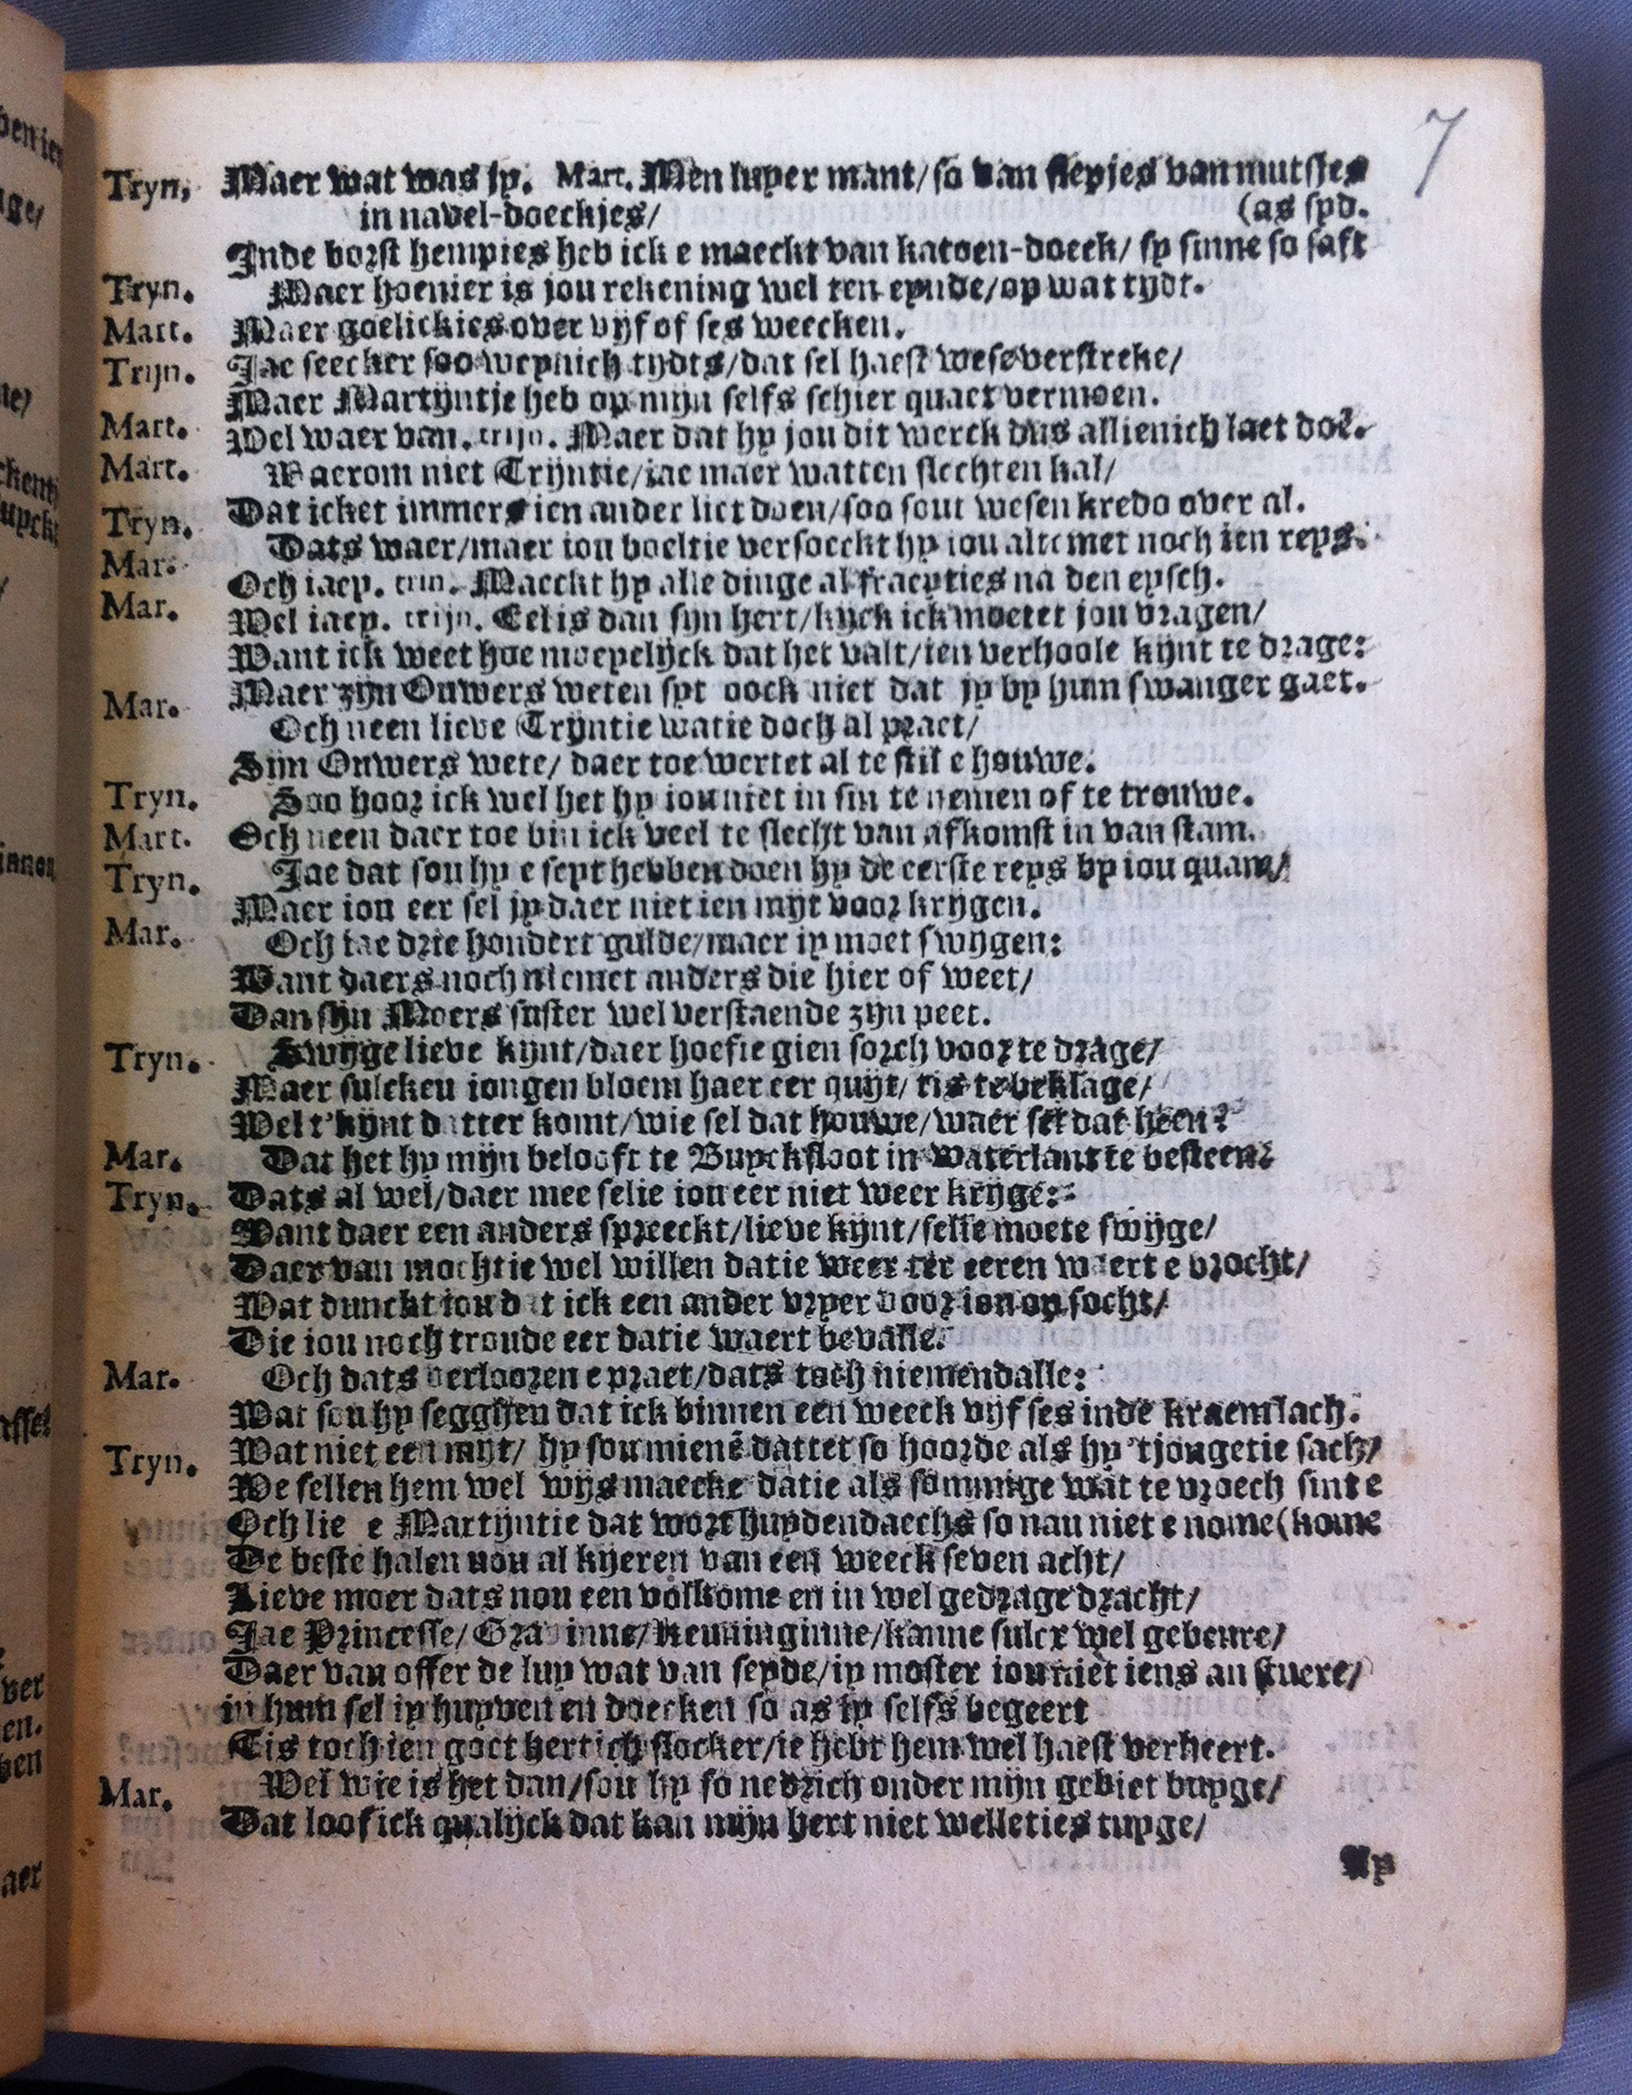 7
Tryn, Maer wat was jy. Mart. Men luyer mant/ so van slepjes van mutsjes
in navel-doeckjes/ (as syd.
Inde borst hempies heb ick e maeckt van katoen-doeck/ sy sinne so saft
Tryn. Maer hoenier is jou rekening wel ten eynde/op wat tydt.
Mart. Maer goelickies over vijf of ses weecken.
Trijn. Jae seecker soo weynich tydts/dat sel haest wese verstreke/
Maer Martijntje heb op mijn selfs schier quaet vermoen.
Mart. Wel waer van. trijn. Maer dat hy jou dit werck dus allienich laet doē.
Mart. Waerom niet Trijntie/iae maer watten slechten kal/
Dat icket immers ien ander liet doen/soo sout wesen kredo over al.
Tryn. Dats waer/maer iou boeltie versoeckt hy iou altemet noch ien reys.
Mar. Och iaey. trin. Maeckt hy alle dinge al fraeyties na den eysch.
Mar. Wel iaey. trijn. Eel is dan sijn hert/kijck ick moetet jou vragen/
Want ick weet hoe moeyelijck dat het valt/ien verhoole kijnt te drage:
Maer zijn Ouwers weten syt oock niet dat jy by hum swanger gaet.
Mar. Och neen lieve Trijntie watie doch al praet/
Sijn Ouwers wete/ daer toe wertet al te stil e houwe.
Tryn. Soo hoor ick wel het hy iou niet in sin te nemen of te trouwe.
Mart. Och neen daer toe bin ick veel te slecht van afkomst in van stam.
Tryn. Jae dat sou hy e seyt hebben doen hy de eerste reys by iou quam/
Maer iou eer sel jy daer niet ien mijt voor krijgen.
Mar. Och iae drie hondert gulde/maer jy moet swijgen:
Want daers noch niemet anders die hier of weet/
Dan sijn Moers suster wel verstaende zijn peet.
Tryn. Swijge lieve kijnt/daer hoefie gien sorch voor te drage/
Maer sulcken iongen bloem haer eer quijt/ tis te beklage/
Wel t'kijnt datter komt/wie sel dat houwe/waer sel dat heen?
Mar. Dat het hy mijn belooft te Buyckfloot in Waterlant te besteen.
Tryn. Dats al wel/daer mee selie iou eer niet weer krijge:
Want daer een anders spreeckt/lieve kijnt/selje moete swijge/
Daer van mochtie wel willen datie weer ter eeren waert e brocht/
Wat dunckt iou dat ick een ander vryer voor iou op socht/
Die iou noch troude eer datie waert bevalle.
Mar. Och dats verlooren e praet/dats toch niemendalle:
Wat sou hy segghen dat ick binnen een weeck vijf ses inde kraem lach.
Tryn. Wat niet een mijt/ hy sou mienē dattet so hoorde als hy 'tjongetie sach/
We sellen hem wel wijs maecke datie als sommige wat te vroech sint e
Och lie e Martijntie dat wort huydendaechs so nau niet e nome (kome
De beste halen nou al kijeren van een weeck seven acht/
Lieve moer dats nou een volkome en in wel gedrage dracht/
Jae Princesse/ Gra inne/ Keuninginne/kanne sulcx wel gebeure/
Daer van offer de luy wat van seyde/jy moster iou niet iens an stuere/
in hum sel jy huyven en doecken so as jy selfs begeert
Tis toch ien goet hertich slocker/ie hebt hem wel haest verheert.
Mar. Wel wie is het dan/sou hy so nedrich onder mijn gebiet buyge/
Dat loof ick qualijck dat kan mijn hert niet welleties tuyge/
Ay